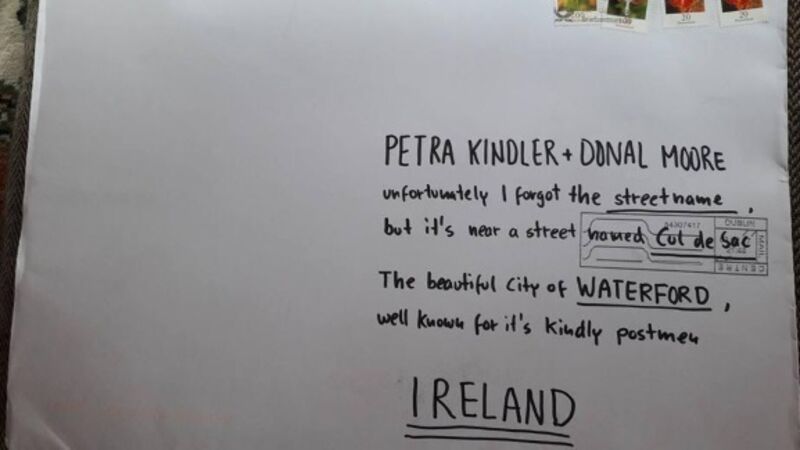 20
20
PETRA KINDLER + DONAL MOORE
unfortunately I forgot the streetname,
but it's near a street named Cul de Sac
DUBLIN
MAIL
CENTRE
The beautiful City of WATERFORD,
well known for it's kindly postmen
IRELAND